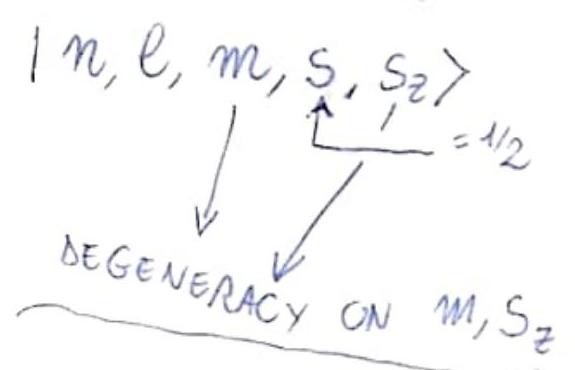 | n, l, m, s, s_z >
= 1/2
DEGENERACY ON m, s_z